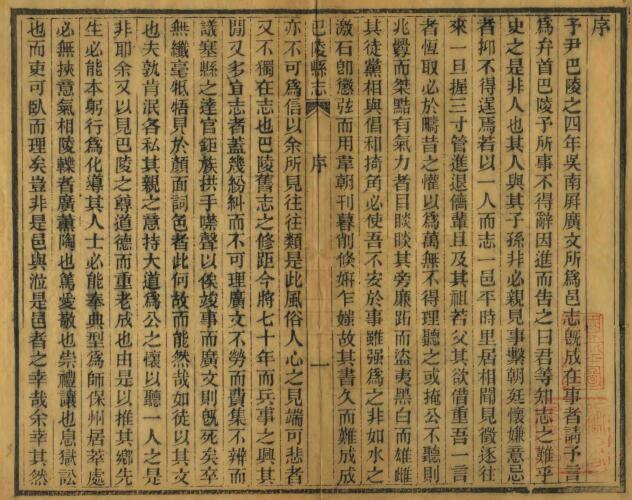 序
予尹巴陵之四年吳南屛廣文所爲邑志旣成在事者請予言
爲弁首巴陵予所事不得辭因進而告之曰君等知志之難乎
史之是非人也其人與其子孫非必親見事繫朝廷懷嫌意忌
者抑不得逞焉若以一人而志一邑平時里居相聞見徵逐往
來一旦握三寸管進退儕輩且及其祖若父其欲借重吾一言
者恆取必於疇昔之懽以爲萬無不得理聽之或掩公不聽則
兆釁而桀黠有氣力者目睒睒其旁廉跖而盜夷黑白而雄雌
其徒黨相與倡和掎角必使吾不安於事雖强爲之非如水之
激石卽懲弦而用韋朝刊暮削條妍乍媸故其書久而難成成
巴陵縣志
序
一
亦不可爲信以余所見往往類是此風俗人心之見端可悲者
又不獨在志也巴陵舊志之修距今將七十年而兵事之興其
閒又多宜志者蓋幾紛糾而不可理廣文不勞而費集不辨而
議塞縣之達官鉅族拱手噤聲以俟竣事而廣文則旣死矣卒
無纖毫牴牾見於顏面詞色者此何故而能然哉如徒以其文
也夫孰肯泯各私其親之意持大道爲公之懷以聽一人之是
非耶余又以見巴陵之尊道德而重老成也由是以推其鄉先
生必能本躬行爲化導其人士必能奉典型爲師保州居萃處
必無挾意氣相陵轢者廣薰陶也篤愛敬也崇禮讓也息獄訟
也而吏可臥而理矣豈非是邑與涖是邑者之幸哉余幸其然